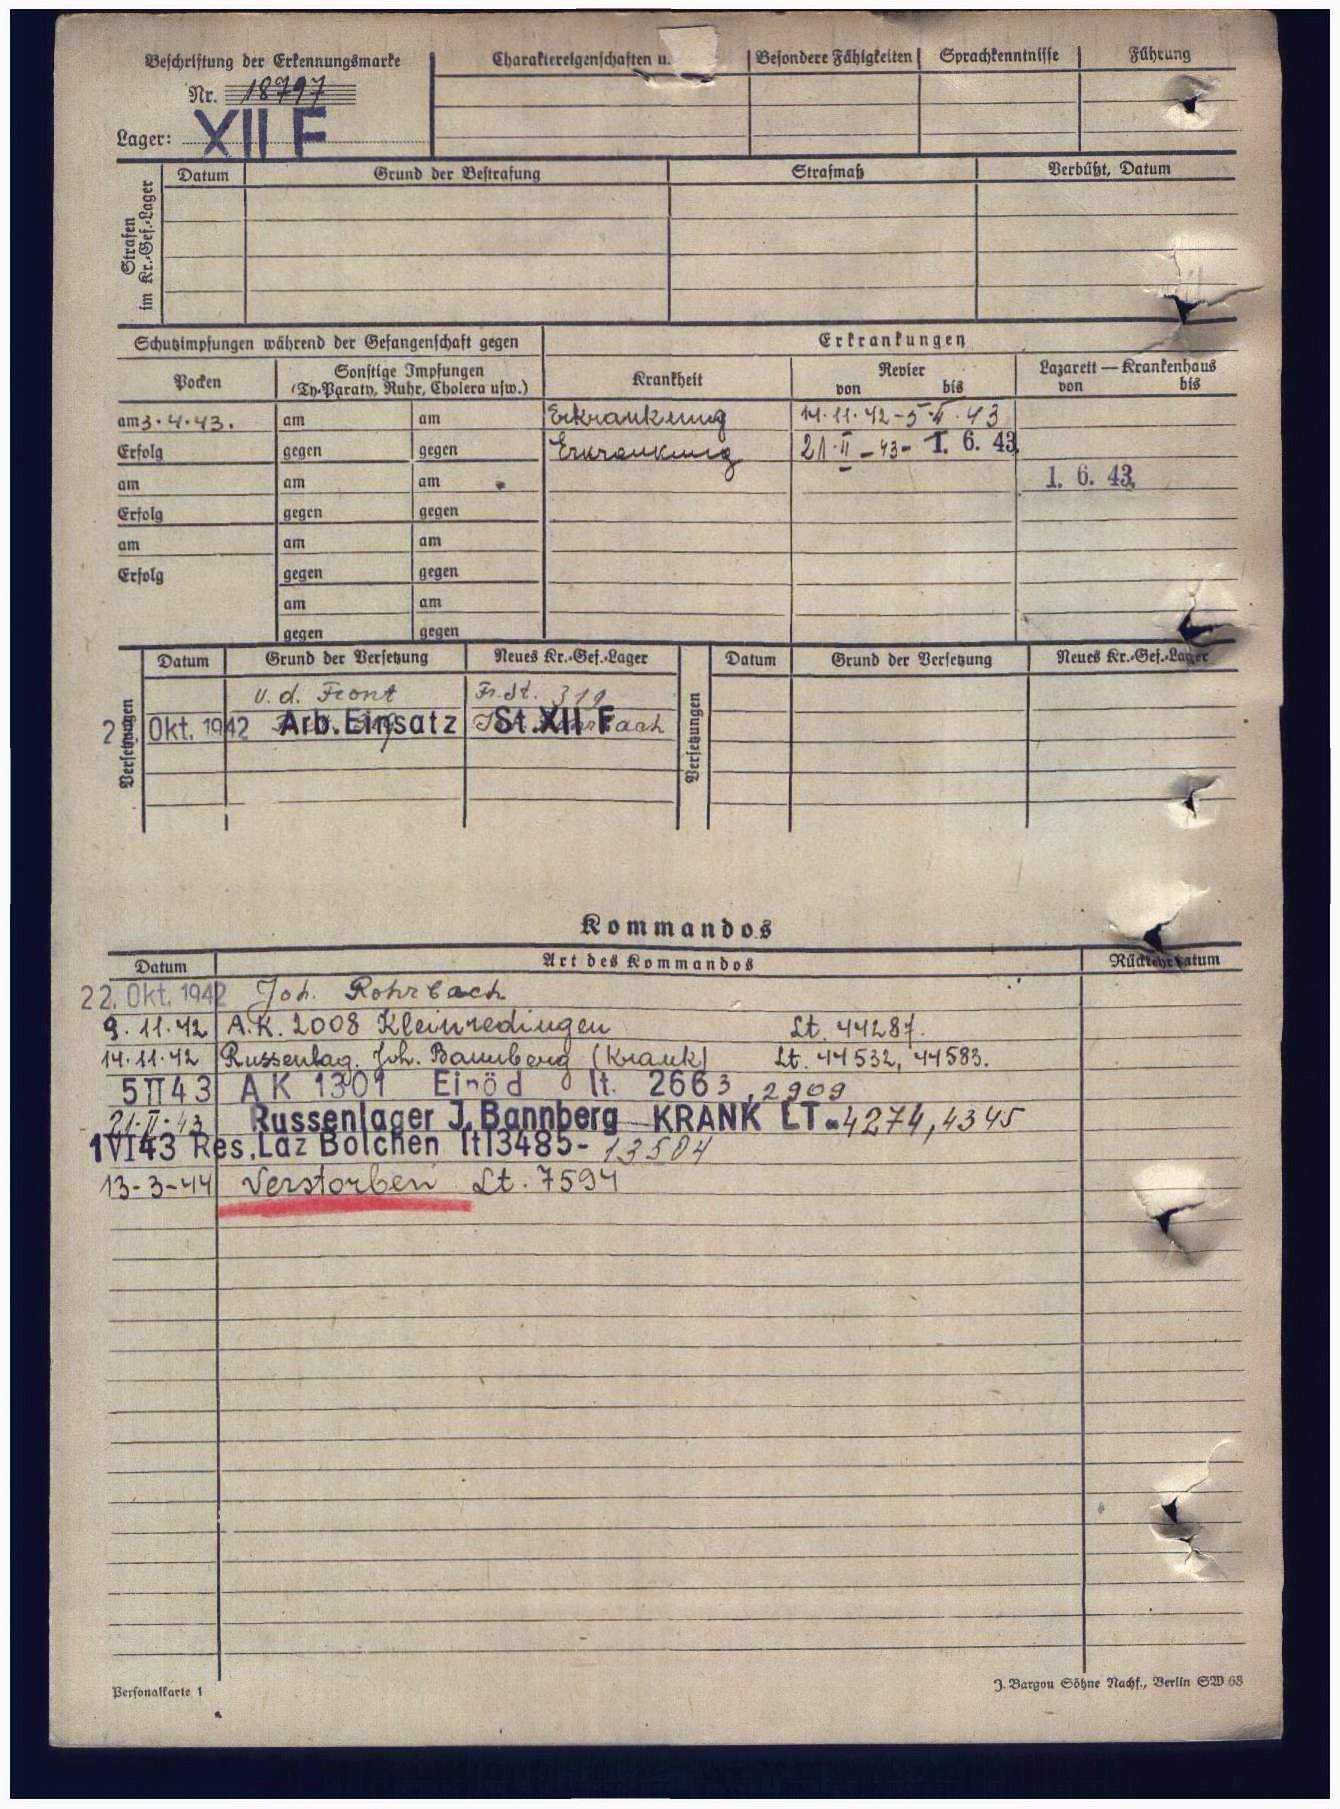 Beschriftung der Erkennungsmarke
Nr. 18797
Lager: XII F
Charaktereigenschaften u.
Besondere Fähigkeiten
Sprachkenntnisse
Führung
Strafen
im Kr.-Gef.-Lager
Datum
Grund der Bestrafung
Strafmaß
Verbüßt, Datum
Schutzimpfungen während der Gefangenschaft gegen
Erkrankungen
Pocken
Sonstige Impfungen
(Ty.-Paraty, Ruhr, Cholera usw.)
Krankheit
Revier
von bis
Lazarett — Krankenhaus
von bis
am 3.4.43. am am Erkrankung 14.11.42-5.II.43
Erfolg gegen gegen Erkrankung 21.II-43- 1. 6. 43
am am am 1. 6. 43.
Erfolg gegen gegen
am am am
Erfolg gegen gegen
am am
gegen gegen
Versetzungen
Datum Grund der Versetzung Neues Kr.-Gef.-Lager
v. d. Front Fr. St. 319
2 Okt. 1942 Arb.Einsatz St.XII F
Versetzungen
Datum Grund der Versetzung Neues Kr.-Gef.-Lager
Kommandos
Datum Art des Kommandos Rückkehrdatum
22. Okt. 1942 Joh. Rohrbach
9.11.42 A.K. 2008 Kleinredingen Lt. 44287.
14.11.42 Russenlag. Joh. Bannberg (Krank) Lt. 44532, 44583.
5 II 43 A K 1301 Einöd lt. 2663, 2909
21.II.43 Russenlager J. Bannberg KRANK LT. 4274, 4345
1 VI 43 Res. Laz Bolchen lt 13485- 13504
13-3-44 Verstorben Lt. 7594
Personalkarte 1
J. Bargou Söhne Nachf., Berlin SW 68